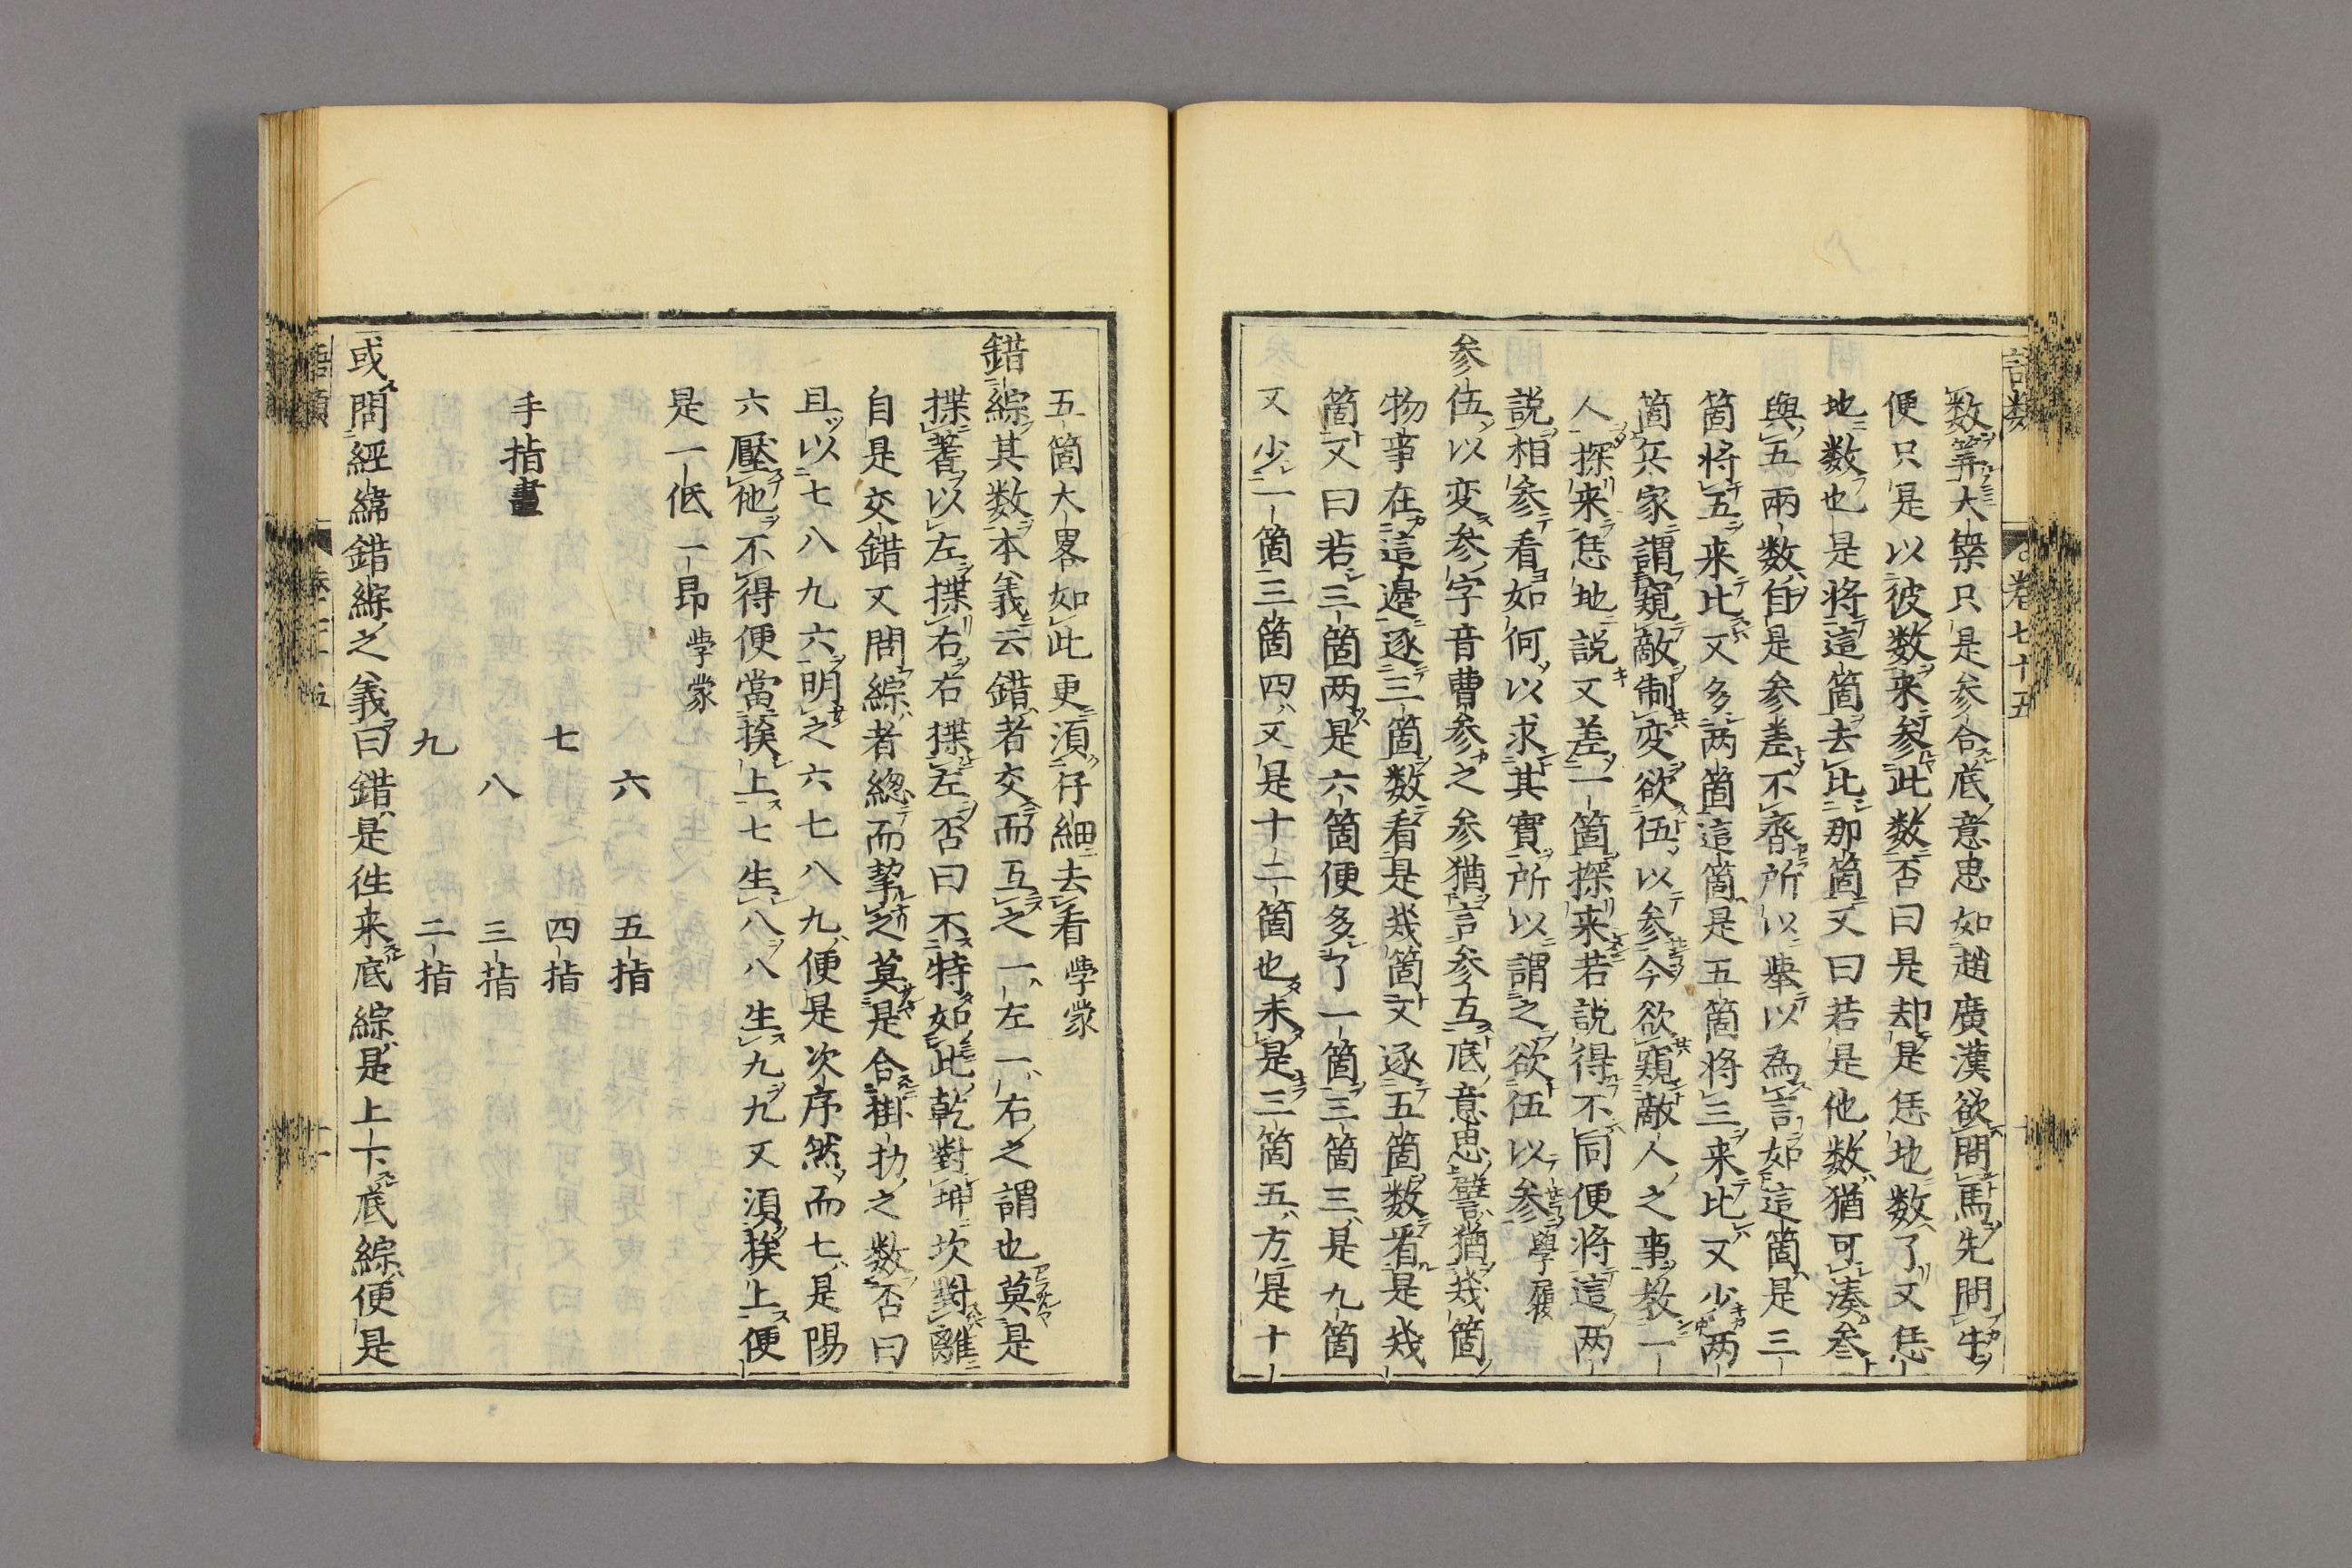 数筭大槩只是参合底意思如趙廣漢欲問馬先問牛
便只是以彼数来参此数否曰是却是恁地数了又恁
地数也是将這箇去比那箇又曰若是他数猶可湊参
與五兩数自是参差不齊所以舉以為言如這箇是三
箇将五来比又多两箇這箇是五箇将三来比又少两
箇兵家謂窺敵制変欲伍以参今欲窺敵人之事教一
人探来恁地説又差一箇探来若説得不同便将這两
説相参看如何以求其實所以謂之欲伍以参學履
参伍以変参字音曹参之参猶言参互底意思譬猶幾箇
物事在這邊逐三箇数看是幾箇又逐五箇数看是幾
箇又曰若三箇两是六箇便多了一箇三箇三是九箇
又少一箇三箇四又是十二箇也未是三箇五方是十
五箇大畧如此更湏仔細去看學蒙
錯綜其数本義云錯者交而互之一左一右之謂也莫是
揲蓍以左揲右右揲左否曰不特如此乾對坤坎對離
自是交錯又問綜者緫而挈之莫是合掛扐之数否曰
且以七八九六明之六七八九便是次序然而七是陽
六壓他不得便當挨上七生八八生九九又湏挨上便
是一低一昂學蒙
六 五指
七 四指
手指畫
八 三指
九 二指
或問經緯錯綜之義曰錯是徃来底綜是上下底綜便是
語類 卷七十五